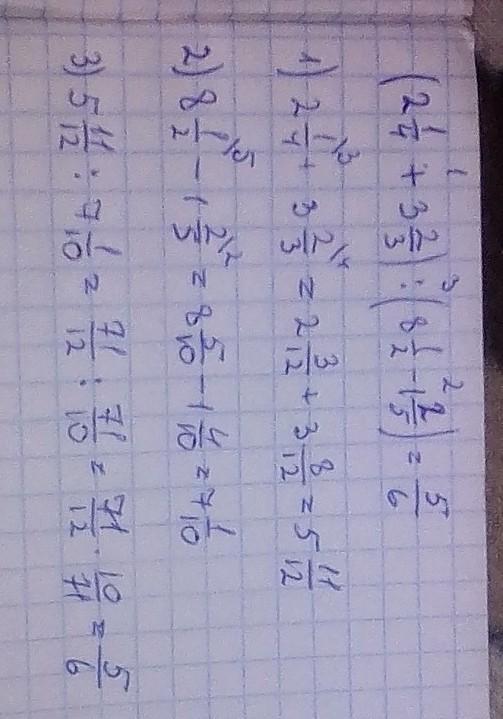 (2 1/4 + 3 2/3) : (8 1/2 - 1 2/5) = 5/6
1) 2 1/4 \3 + 3 2/3 \4 = 2 3/12 + 3 8/12 = 5 11/12
2) 8 1/2 \5 - 1 2/5 \2 = 8 5/10 - 1 4/10 = 7 1/10
3) 5 11/12 : 7 1/10 = 71/12 : 71/10 = 71/12 · 10/71 = 5/6